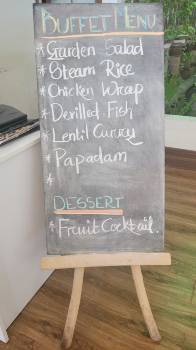 BUFFET MENU
* Garden Salad
* Steam Rice
* Chicken Wrap
* Devilled Fish
* Lentil Curry
* Papadam
*
DESSERT
* Fruit Cocktail.